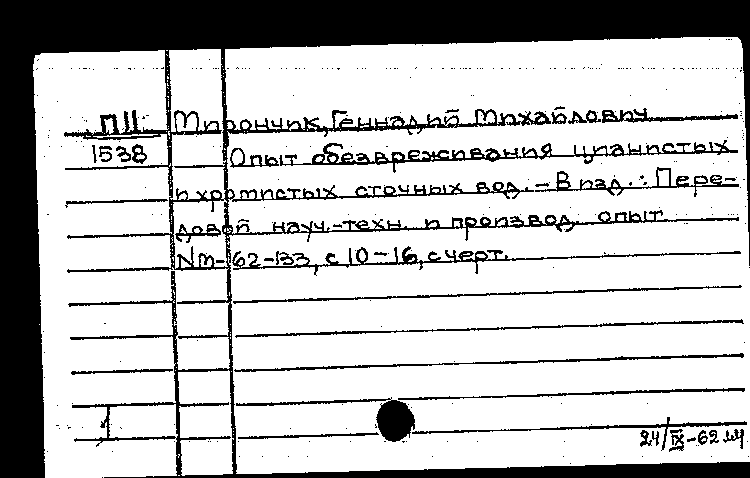 П11 Мирончик, Геннадий Михайлович
1538 Опыт обезвреживания цианистых
и хромистых сточных вод. – В изд.: Пере-
довой науч.-техн. и производ. опыт
№ М-62-133, с 10-16, с черт.
1
24/IX-62